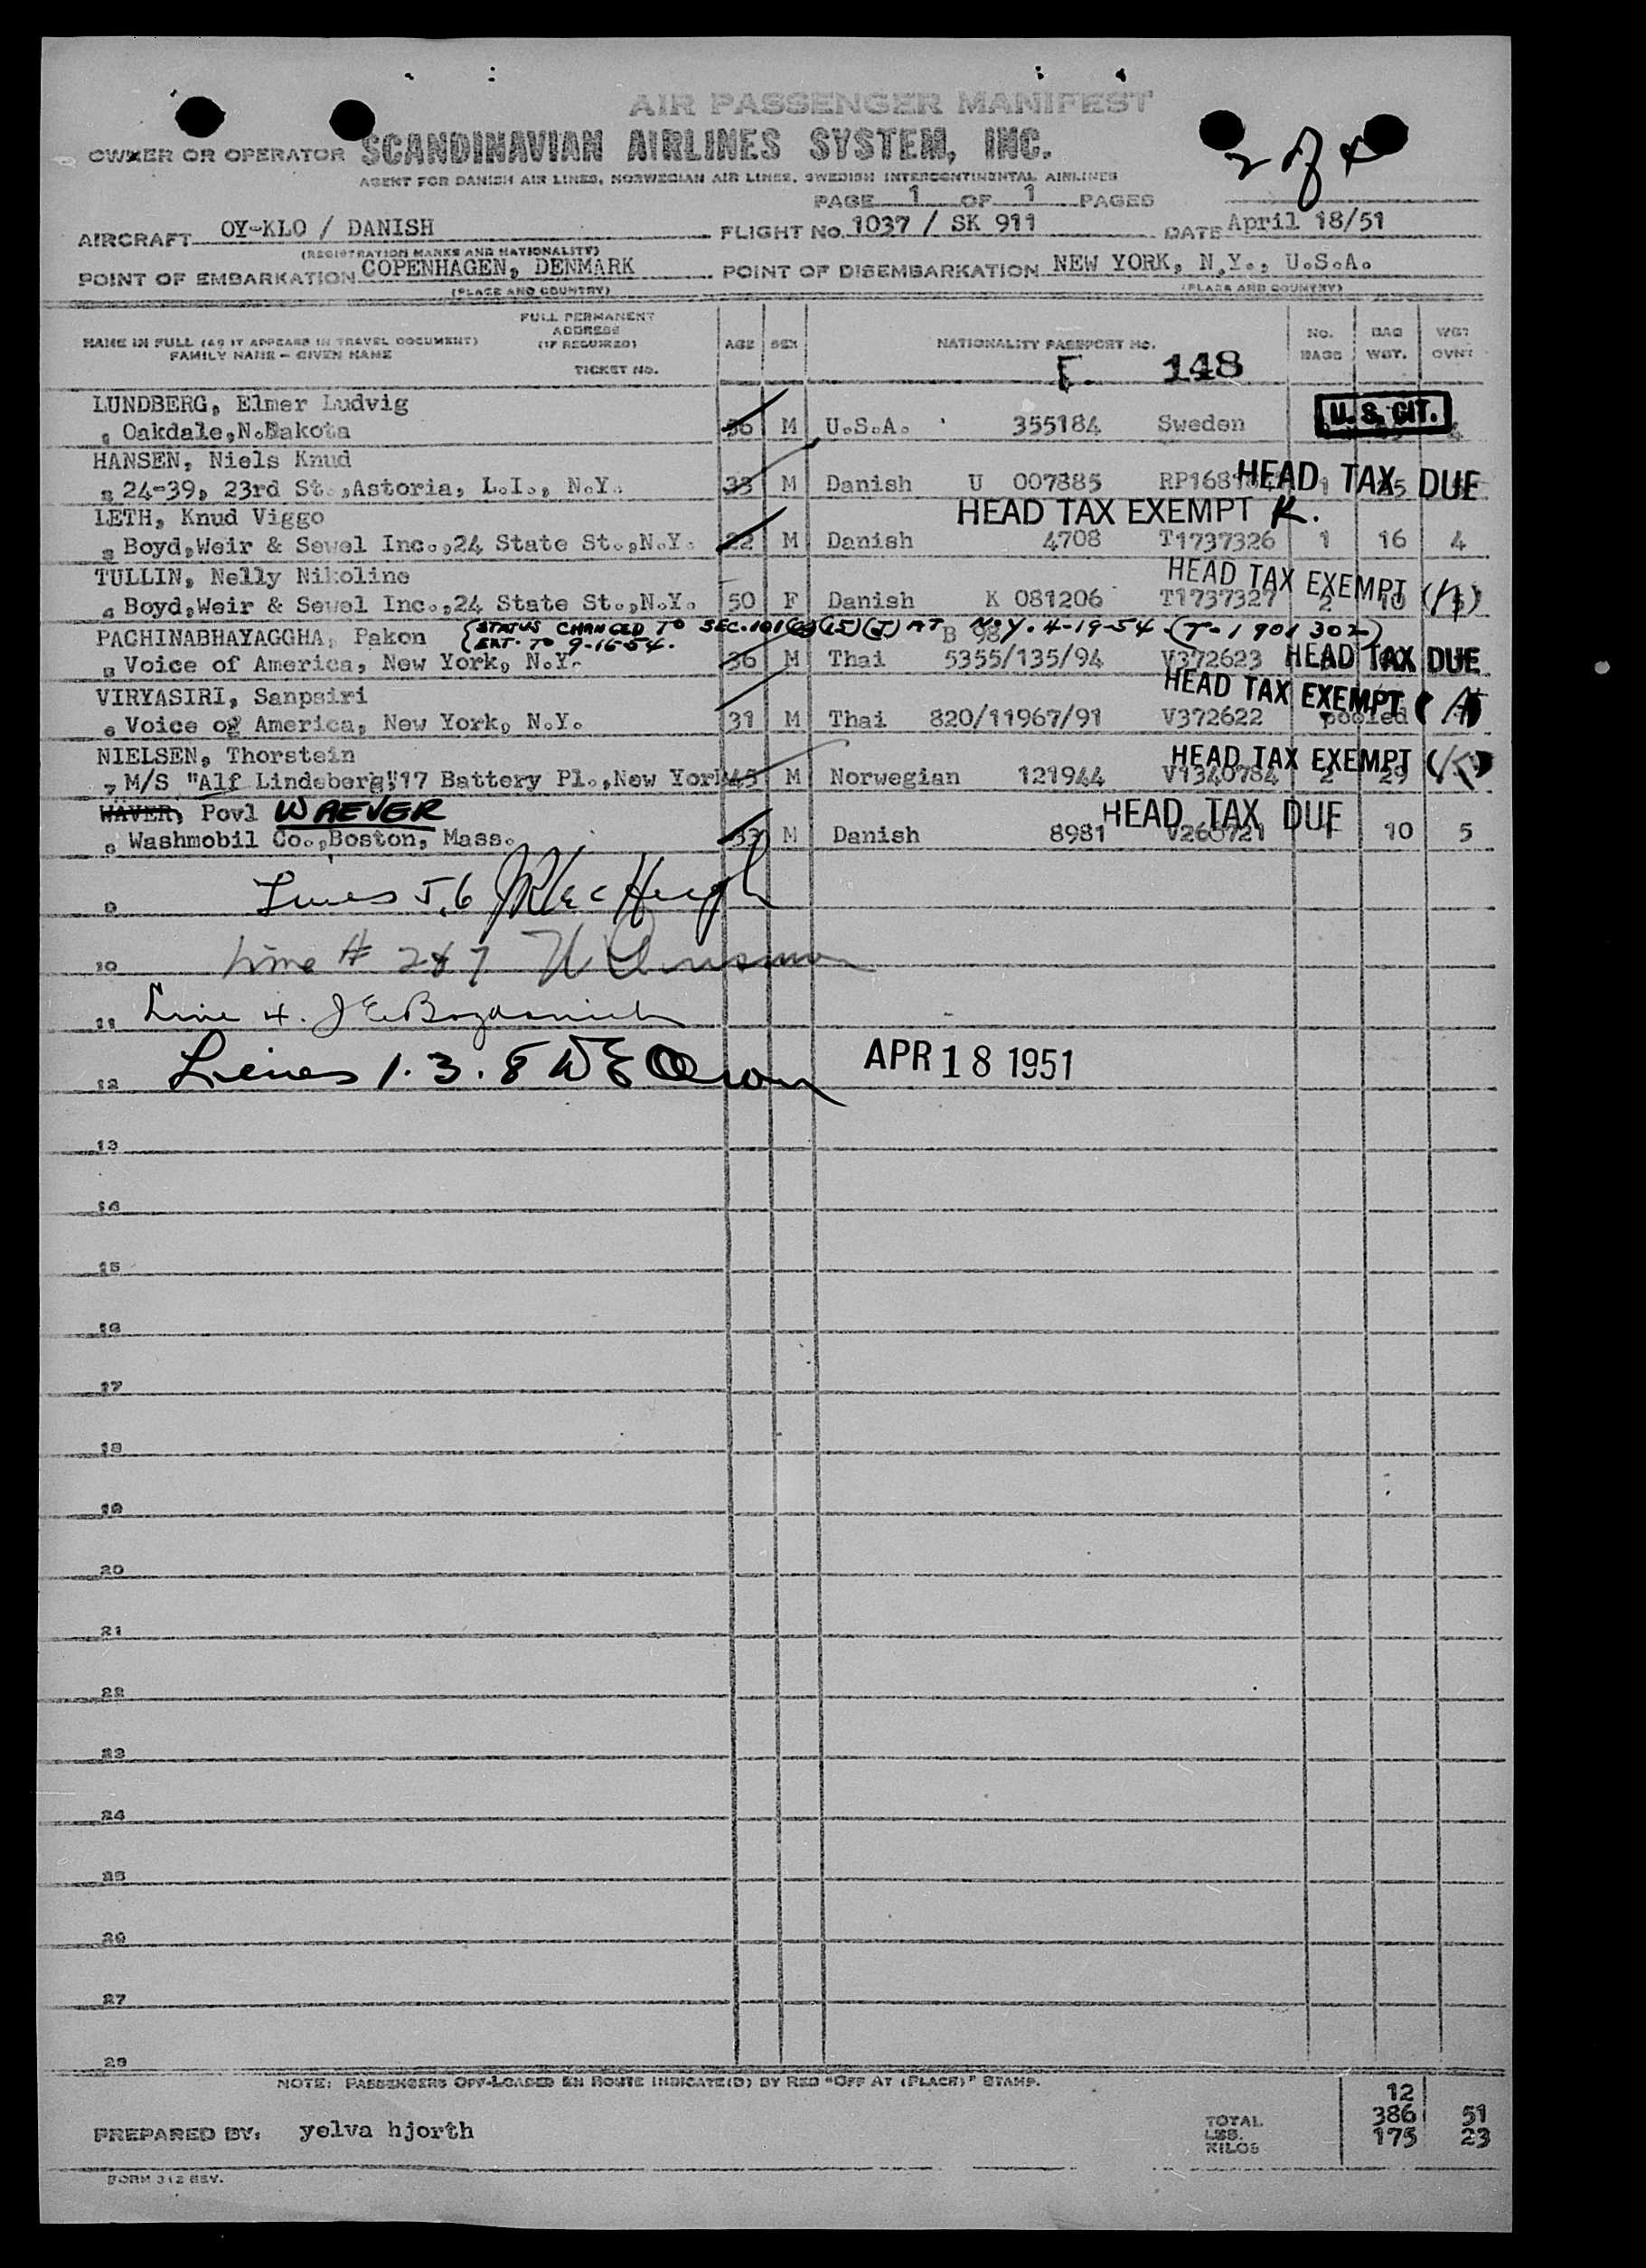 AIR PASSENGER MANIFEST
OWNER OR OPERATOR SCANDINAVIAN AIRLINES SYSTEM, INC.
2 of 4
AGENT FOR DANISH AIR LINES, NORWEGIAN AIR LINES, SWEDISH INTERCONTINENTAL AIRLINES
PAGE 1 OF 1 PAGES
AIRCRAFT OY-KLO / DANISH FLIGHT NO. 1037 / SK 911 DATE April 18/51
(REGISTRATION MARKS AND NATIONALITY)
POINT OF EMBARKATION COPENHAGEN, DENMARK POINT OF DISEMBARKATION NEW YORK, N.Y., U.S.A.
(PLACE AND COUNTRY) (PLACE AND COUNTRY)
NAME IN FULL (AS IT APPEARS IN TRAVEL DOCUMENT) FAMILY NAME - GIVEN NAME
FULL PERMANENT ADDRESS (IF REQUIRED) TICKET NO.
AGE SEX NATIONALITY PASSPORT NO. No. BAGS BAG WGT. WGT OVWT
148
LUNDBERG, Elmer Ludvig
1 Oakdale,N.Dakota 36 M U.S.A. 355184 Sweden U.S. CIT.
HANSEN, Niels Knud
2 24-39, 23rd St.,Astoria, L.I., N.Y. 33 M Danish U 007885 RP168 1 HEAD TAX DUE
LETH, Knud Viggo HEAD TAX EXEMPT K.
3 Boyd,Weir & Sewel Inc.,24 State St.,N.Y. 22 M Danish 4708 T1737326 1 16 4
TULLIN, Nelly Nikoline HEAD TAX EXEMPT
4 Boyd,Weir & Sewel Inc.,24 State St.,N.Y. 50 F Danish K 081206 T1737327 2
PACHINABHAYAGGHA, Pakon (STATUS CHANGED TO SEC.101(a)(15)(J) AT N.Y. 4-19-54 (T-1901302)
(EXT. TO 9-16-54. B 98
5 Voice of America, New York, N.Y. 36 M Thai 5355/135/94 V372623 HEAD TAX DUE
VIRYASIRI, Sanpsiri HEAD TAX EXEMPT
6 Voice of America, New York, N.Y. 31 M Thai 820/11967/91 V372622 pooled
NIELSEN, Thorstein HEAD TAX EXEMPT
7 M/S "Alf Lindeberg"17 Battery Pl.,New York 45 M Norwegian 121944 V1340784 2 29
WAVER, Povl WAEVER HEAD TAX DUE
8 Washmobil Co.,Boston, Mass. 33 M Danish 8981 V260721 1 10 5
9 Lines 5,6
10 Line # 2&7
11 Line 4.
12 Lines 1.3.8 APR 18 1951
13
14
15
16
17
18
19
20
21
22
23
24
25
26
27
28
NOTE: PASSENGERS OFF-LOADED EN ROUTE INDICATE(D) BY RED "OFF AT (PLACE)" STAMP.
12
TOTAL LBS. 386 51
PREPARED BY: yelva hjorth KILOS 175 23
FORM 312 REV.